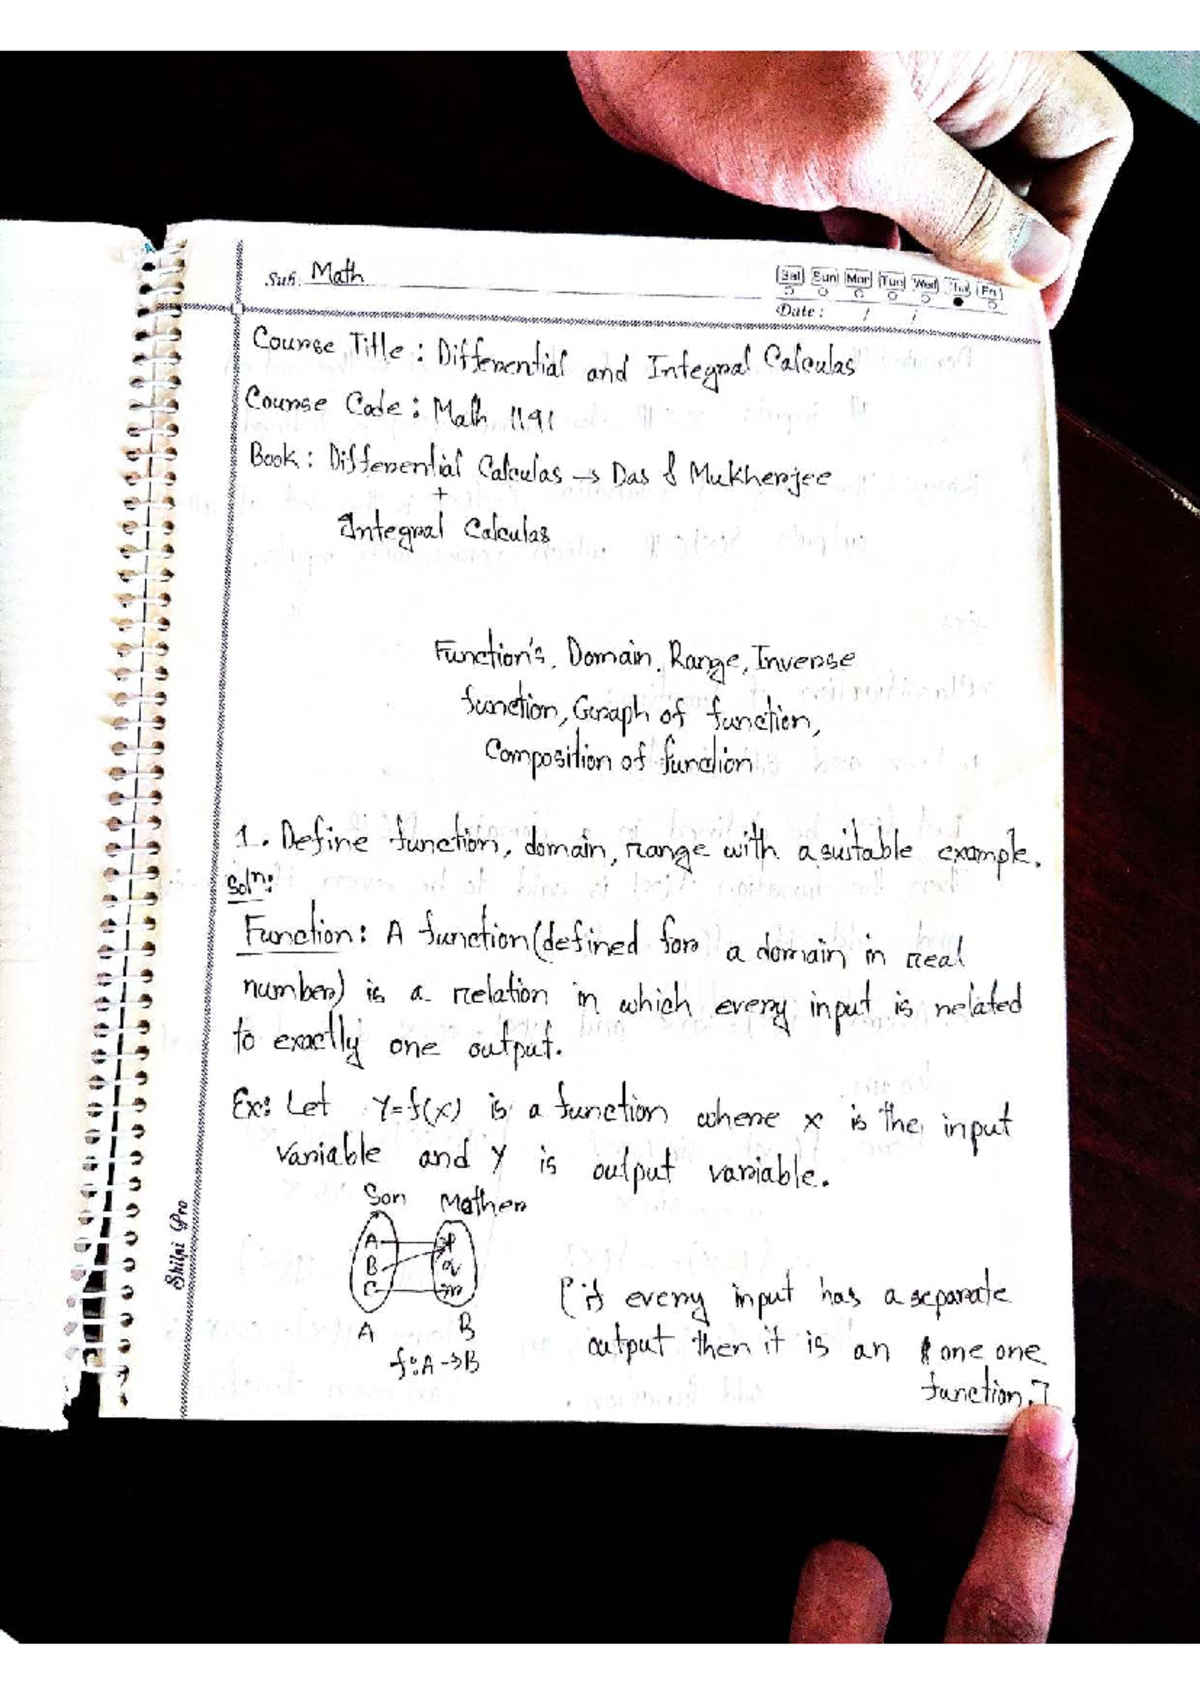 Sub: Math
Sat Sun Mon Tue Wed Thu Fri
Date: / /
Course Title: Differential and Integral Calculas
Course Code: Math 1191
Book: Differential Calculas → Das & Mukherjee
+
Integral Calculas
Function's, Domain, Range, Inverse
function, Graph of function,
Composition of function
1. Define function, domain, range with a suitable example.
Solⁿ:
Function: A function (defined for a domain in real
number) is a relation in which every input is related
to exactly one output.
Ex: Let Y=f(x) is a function where x is the input
variable and Y is output variable.
Son Mother
A p
B q
C r
A B
f: A → B
[if every input has a separate
output then it is an one one
function.]
Shilpi Pro